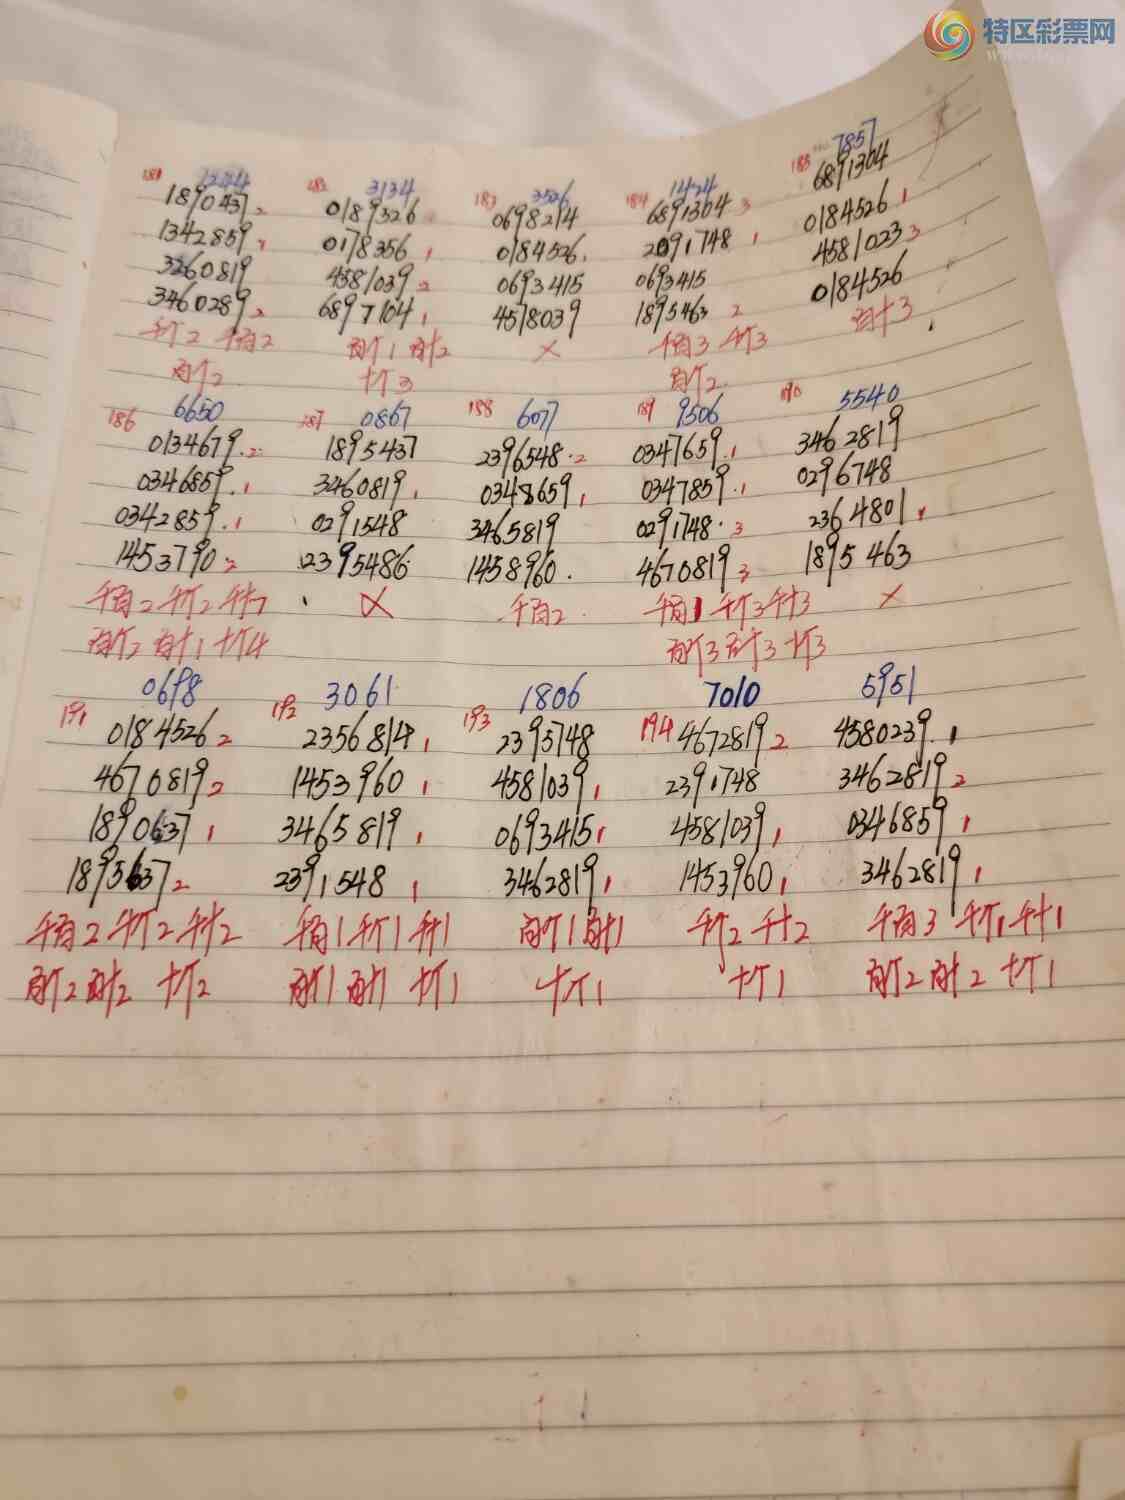 特区彩票网
181 182 3134 183 3526 184 1424 185 7857
1890437 2 0189326 0698214 6891304 3 6891304
1342859 0178356 1 0184526 2091748 1 0184526 1
3260819 4581039 2 0693415 0693415 4581023 3
3460289 2 6897104 1 4518039 1895463 2 0184526
千个2 千百2 百个1 百十2 × 千百3 千个3 百十3
百个2 十个3 百个2
186 6650 187 0867 188 6077 189 9506 190 5540
0134679 2 1895437 2396548 2 0347659 1 3462819
0346859 1 3460819 1 0348659 1 0347859 1 0296748
0342859 1 0291548 3465819 0291748 3 2364801 1
1453790 2 2395486 1458960 4670819 3 1895463
千百2 千个2 × 千百2 千百1 千个3 千十3 ×
百个2 百十1 十个4 百个3 百十3 十个3
191 0698 192 3061 193 1806 194 7010 5951
0184526 2 2356814 1 2395748 4672819 2 4580239 1
4670819 2 1453960 1 4581039 1 2391748 3462819 2
1890637 1 3465819 1 0693415 1 4581039 1 0346859 1
1895637 2 2391548 1 3462819 1 1453960 1 3462819 1
千百2 千个2 千十2 千百1 千个1 千十1 百个1 百十1 千个2 千十2 千百3 千个1 千十1
百个2 百十2 十个2 百个1 百十1 十个1 十个1 十个1 百个2 百十2 十个1